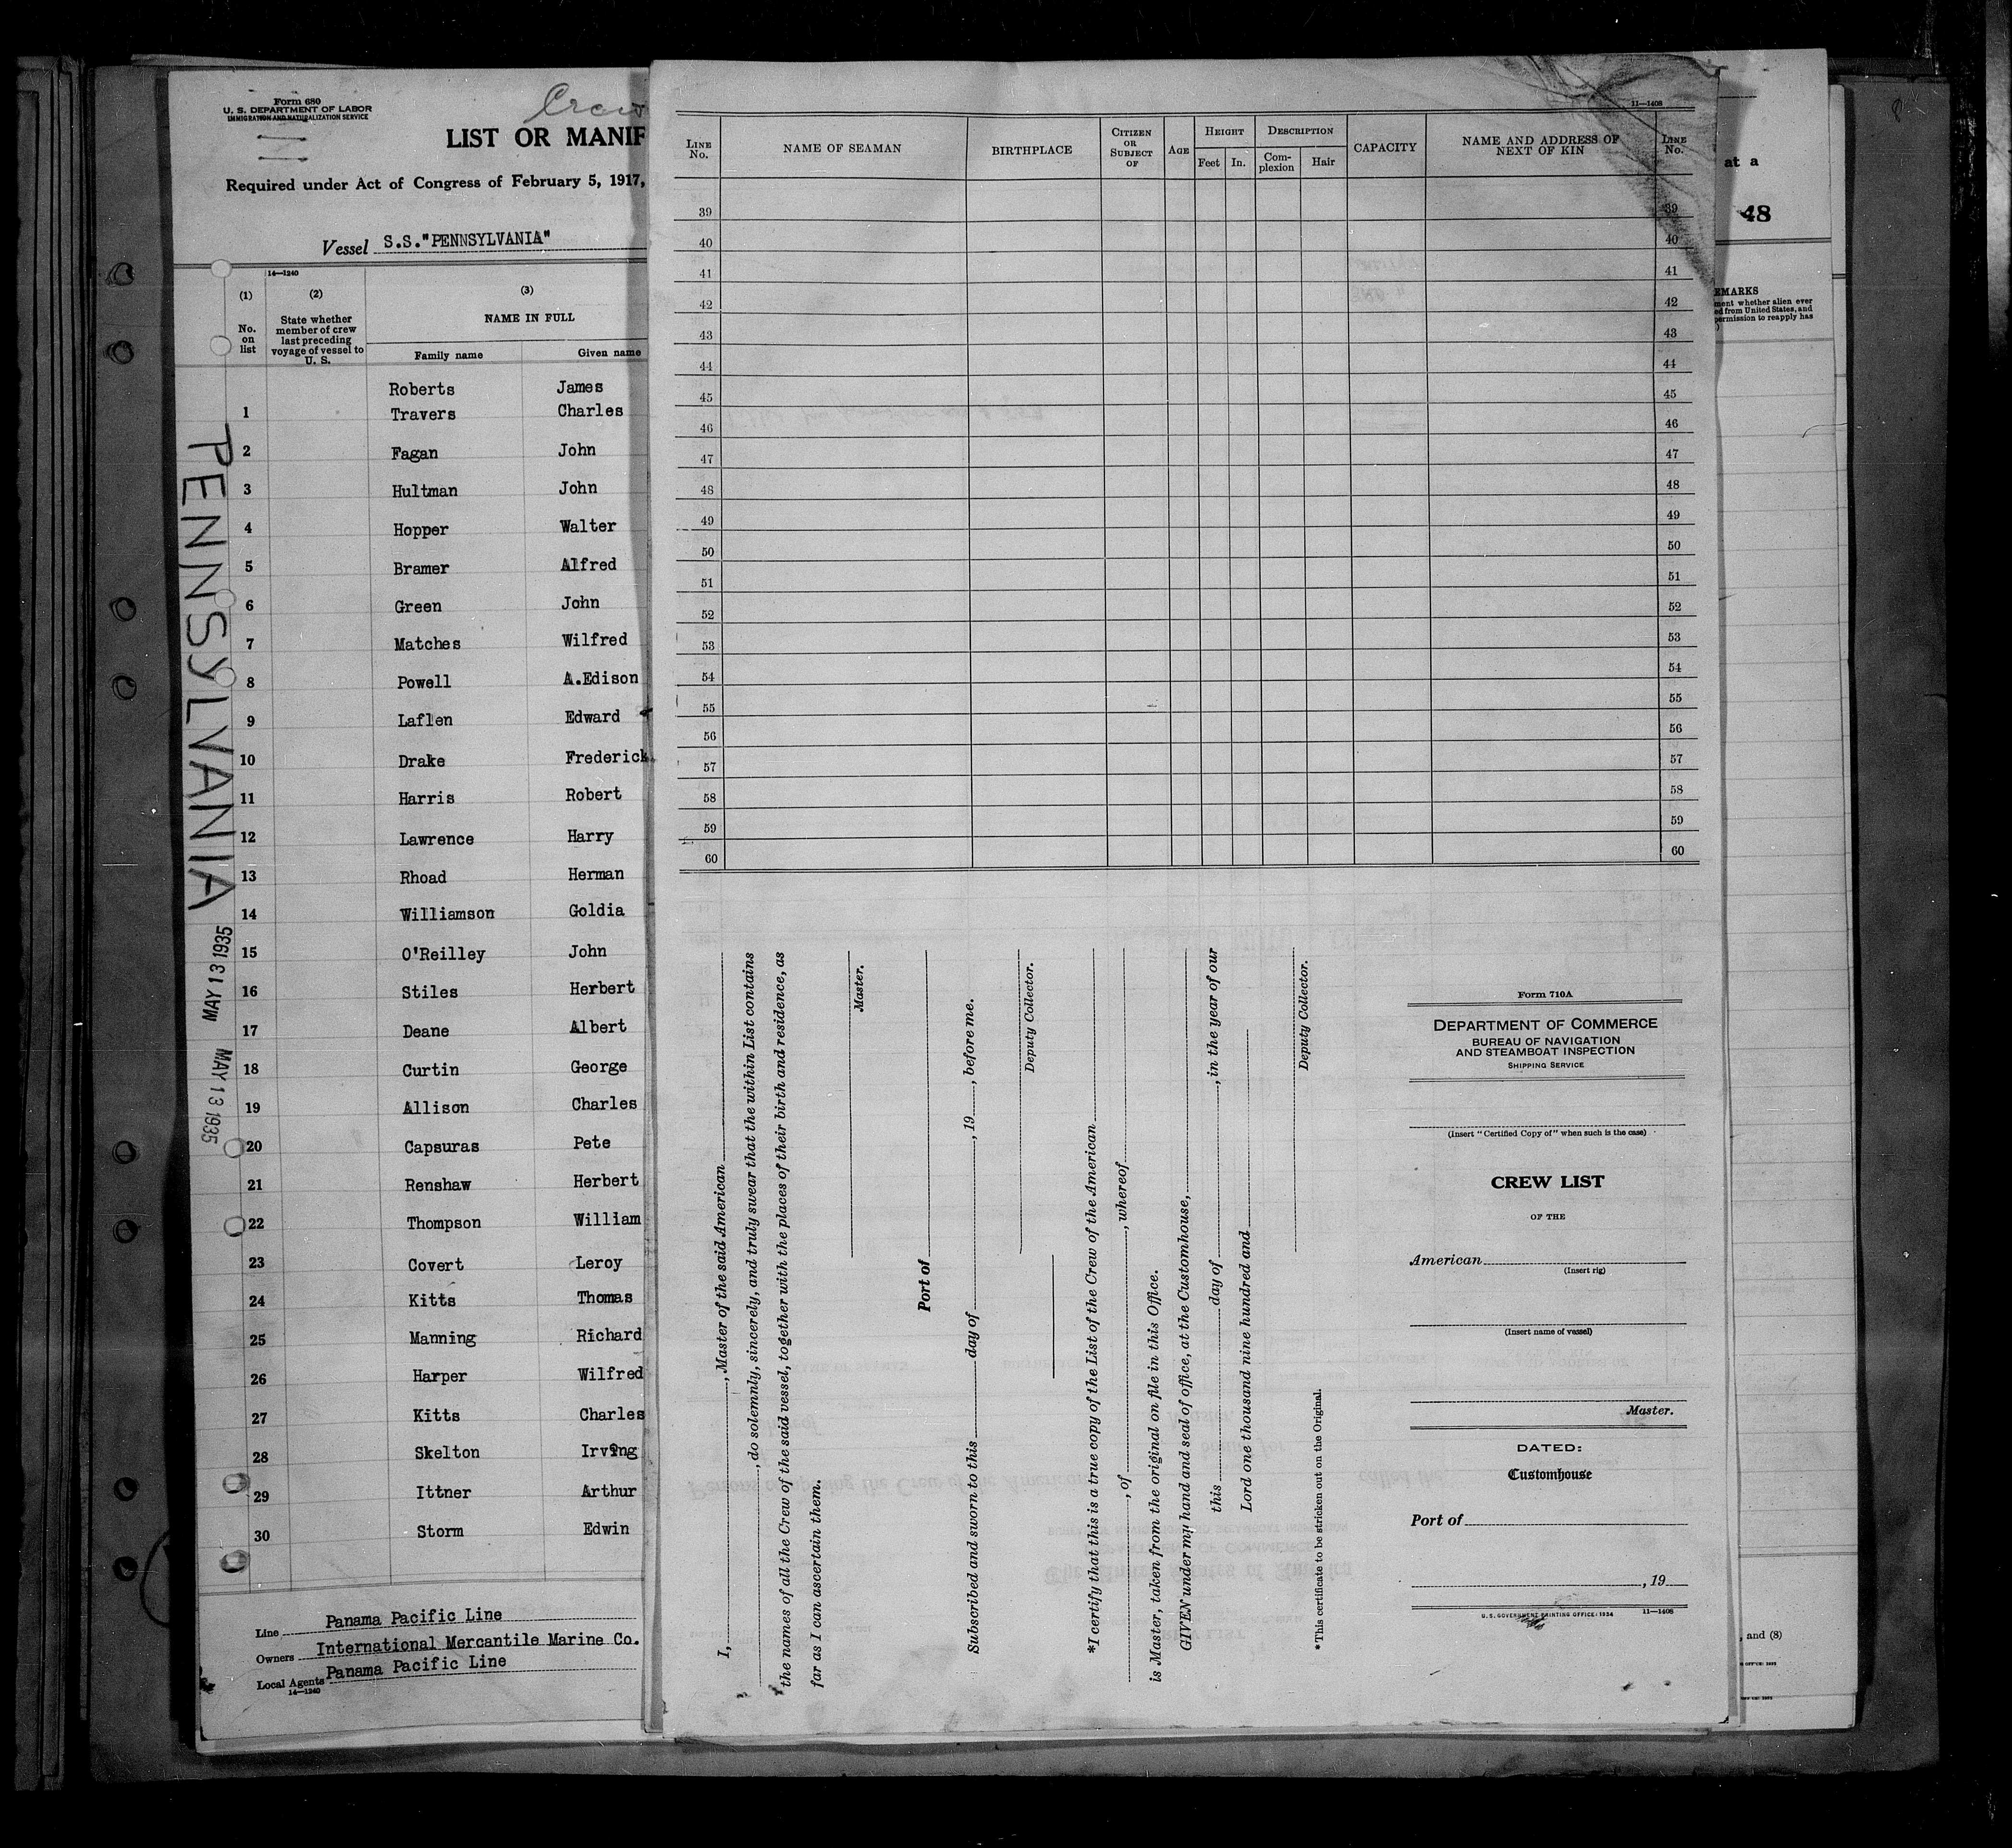 Form 680
U. S. DEPARTMENT OF LABOR
IMMIGRATION AND NATURALIZATION SERVICE
Crew
LIST OR MANIF
Required under Act of Congress of February 5, 1917,
Vessel S.S."PENNSYLVANIA"
14—1240
(1) (2) (3)
No. on list
State whether member of crew last preceding voyage of vessel to U. S.
NAME IN FULL
Family name Given name
Roberts James
1 Travers Charles
2 Fagan John
3 Hultman John
4 Hopper Walter
5 Bramer Alfred
6 Green John
7 Matches Wilfred
8 Powell A.Edison
9 Laflen Edward
10 Drake Frederick
11 Harris Robert
12 Lawrence Harry
13 Rhoad Herman
14 Williamson Goldia
15 O'Reilley John
16 Stiles Herbert
17 Deane Albert
18 Curtin George
19 Allison Charles
20 Capsuras Pete
21 Renshaw Herbert
22 Thompson William
23 Covert Leroy
24 Kitts Thomas
25 Manning Richard
26 Harper Wilfred
27 Kitts Charles
28 Skelton Irving
29 Ittner Arthur
30 Storm Edwin
PENNSYLVANIA
MAY 13 1935
MAY 13 1935
Line Panama Pacific Line
Owners International Mercantile Marine Co.
Local Agents Panama Pacific Line
14—1240
11—1408
LINE No. NAME OF SEAMAN BIRTHPLACE CITIZEN OR SUBJECT OF AGE HEIGHT Feet In. DESCRIPTION Complexion Hair CAPACITY NAME AND ADDRESS OF NEXT OF KIN LINE No.
39 39
40 40
41 41
42 42
43 43
44 44
45 45
46 46
47 47
48 48
49 49
50 50
51 51
52 52
53 53
54 54
55 55
56 56
57 57
58 58
59 59
60 60
I, , Master of the said American
, do solemnly, sincerely, and truly swear that the within List contains
the names of all the Crew of the said vessel, together with the places of their birth and residence, as
far as I can ascertain them.
Master.
Port of
Subscribed and sworn to this day of , 19 , before me.
Deputy Collector.
*I certify that this is a true copy of the List of the Crew of the American
, of , whereof
is Master, taken from the original on file in this Office.
GIVEN under my hand and seal of office, at the Customhouse,
this day of , in the year of our
Lord one thousand nine hundred and
Deputy Collector.
*This certificate to be stricken out on the Original.
Form 710A
DEPARTMENT OF COMMERCE
BUREAU OF NAVIGATION
AND STEAMBOAT INSPECTION
SHIPPING SERVICE
(Insert "Certified Copy of" when such is the case)
CREW LIST
OF THE
American
(Insert rig)
(Insert name of vessel)
Master.
DATED:
Customhouse
Port of
, 19
U.S. GOVERNMENT PRINTING OFFICE: 1934 11—1408
at a
48
EMARKS
ment whether alien ever
ed from United States, and
permission to reapply has
, and (8)